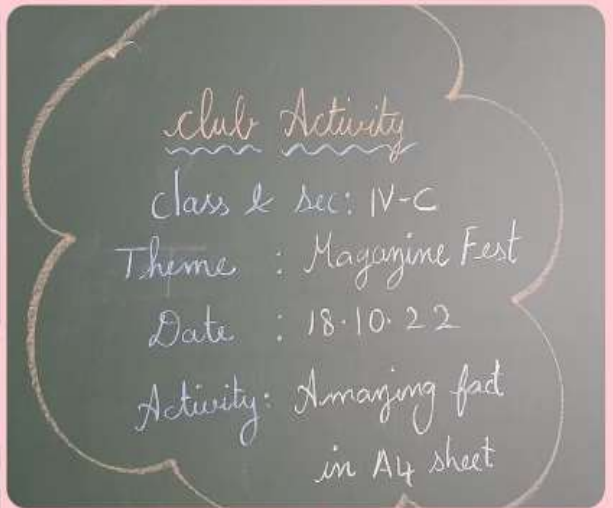 Club Activity
Class & Sec: IV-C
Theme : Magazine Fest
Date : 18.10.22
Activity: Amazing fact
in A4 sheet